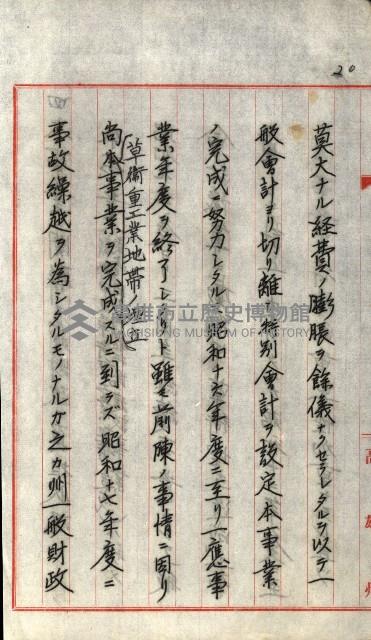 20
莫大ナル経費ノ膨脹ヲ餘儀ナクセラレタルヲ以テ一
般會計ヨリ切リ離シ特別會計ヲ設定本事業
ノ完成ニ努力シタルモ昭和十六年度ニ至リ一應事
業年度ヲ終了シタリト雖モ前陳ノ事情ニ因リ
草衙重工業地帯ノ
尚本事業ヲ完成スルニ到ラズ昭和十七年度ニ
事故繰越ヲ為シタルモノナルカ之カ州一般財政
高雄州
高雄市立歷史博物館
KAOHSIUNG MUSEUM OF HISTORY